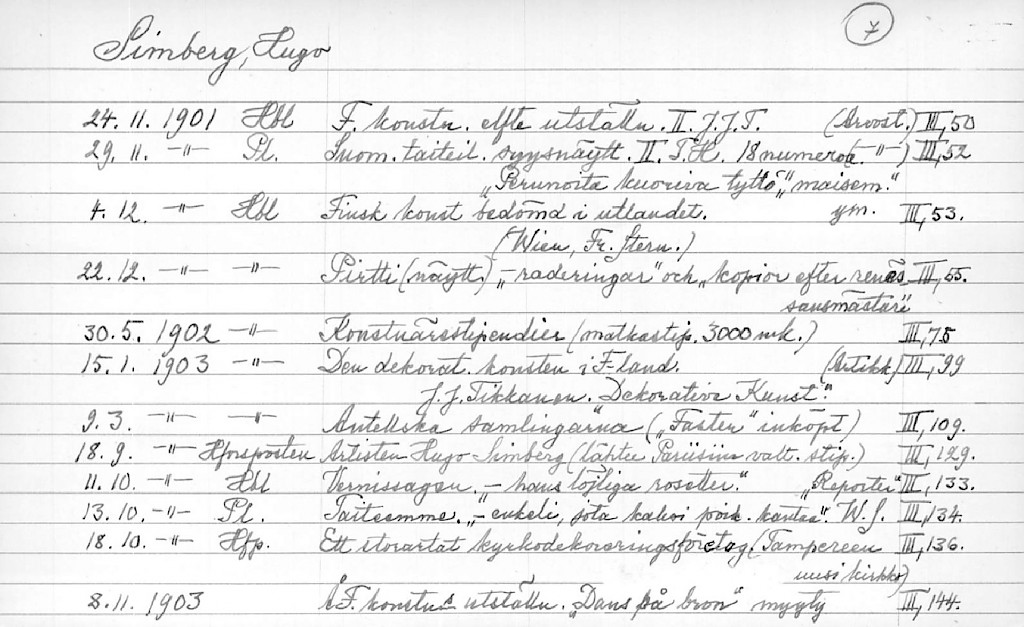 7
Simberg, Hugo
24. 11. 1901 Hbl F. konstn. elfte utställn. II. J.J.T. (Arvost.) III, 50
29. 11. -"- Pl. Suom. taiteil. syysnäytt. II. T.H. 18 numeroa (-"-) III, 52
"Perunoita kuoriva tyttö", "maisem."
4. 12. -"- Hbl Finsk konst bedömd i utlandet. ym. III, 53.
(Wien, Fr. Stern.)
22. 12. -"- -"- Pirtti (näytt.) "-raderingar" och "kopior efter renäs- III, 55.
sansmästare"
30. 5. 1902 -"- Konstnärsstipendier (matkastip. 3000 mk.) III, 75
15. 1. 1903 -"- Den dekorat. konsten i F-land. (Artikk.) III, 99
J.J. Tikkanen. "Dekorative Kunst".
9. 3. -"- -"- Antellska samlingarna ("Faster" inköpt) III, 109.
18. 9. -"- Hforsposten Artisten Hugo Simberg (lähtee Pariisiin valt. stip.) III, 129.
11. 10. -"- Hbl Vernissagen. "- hans löjliga rosetter." "Reporter" III, 133.
13. 10. -"- Pl. Taiteemme. "- enkeli, jota kaksi poik. kantaa". W.S. III, 134.
18. 10. -"- Hfp. Ett storartat kyrkodekoreringsföretag. (Tampereen III, 136.
uusi kirkko)
8. 11. 1903 F. konstn. utställn. "Dans på bron" myyty III, 144.